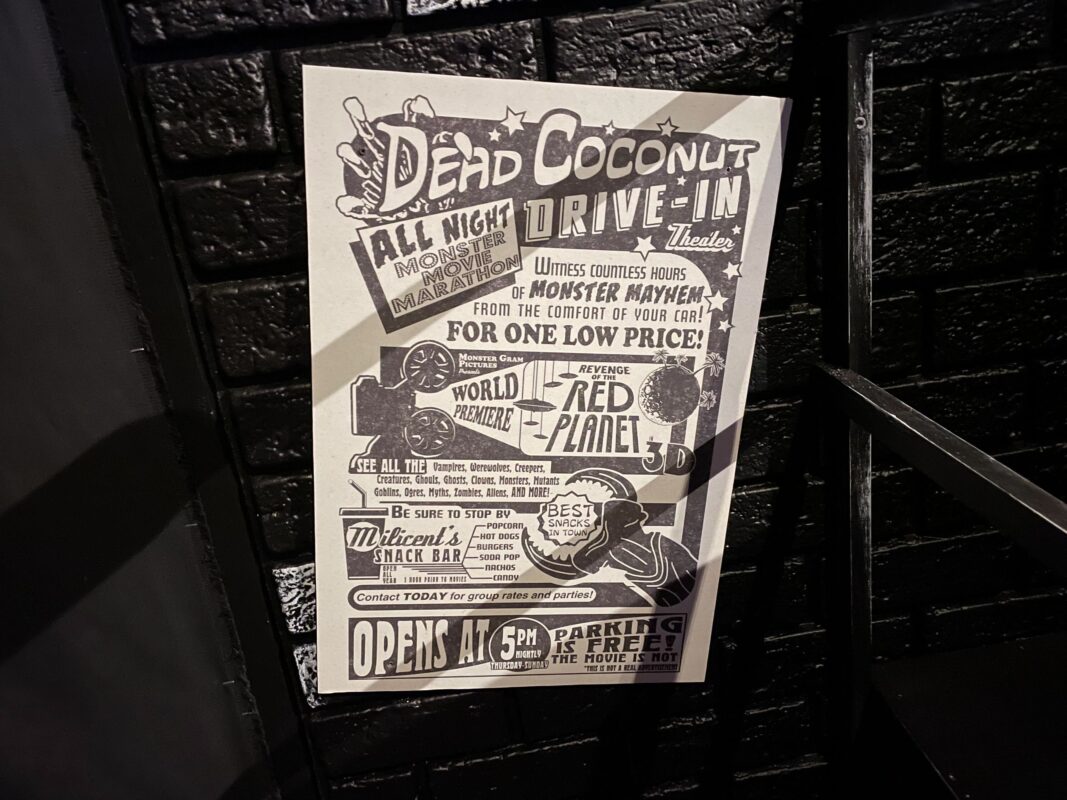 DEAD COCONUT
DRIVE-IN
Theater
ALL NIGHT
MONSTER
MOVIE
MARATHON
WITNESS COUNTLESS HOURS
OF MONSTER MAYHEM
FROM THE COMFORT OF YOUR CAR!
FOR ONE LOW PRICE!
MONSTER GRAM
PICTURES
Presents
WORLD
PREMIERE
REVENGE
OF THE
RED
PLANET
IN
3D
SEE ALL THE Vampires, Werewolves, Creepers,
Creatures, Ghouls, Ghosts, Clowns, Monsters, Mutants
Goblins, Ogres, Myths, Zombies, Aliens, AND MORE!
BE SURE TO STOP BY
Milicent's
SNACK BAR
OPEN
ALL
YEAR
1 HOUR PRIOR TO MOVIES
POPCORN
HOT DOGS
BURGERS
SODA POP
NACHOS
CANDY
BEST
SNACKS
IN TOWN
Contact TODAY for group rates and parties!
OPENS AT
5PM
NIGHTLY
THURSDAY-SUNDAY
PARKING
IS FREE!
THE MOVIE IS NOT
*THIS IS NOT A REAL ADVERTISEMENT